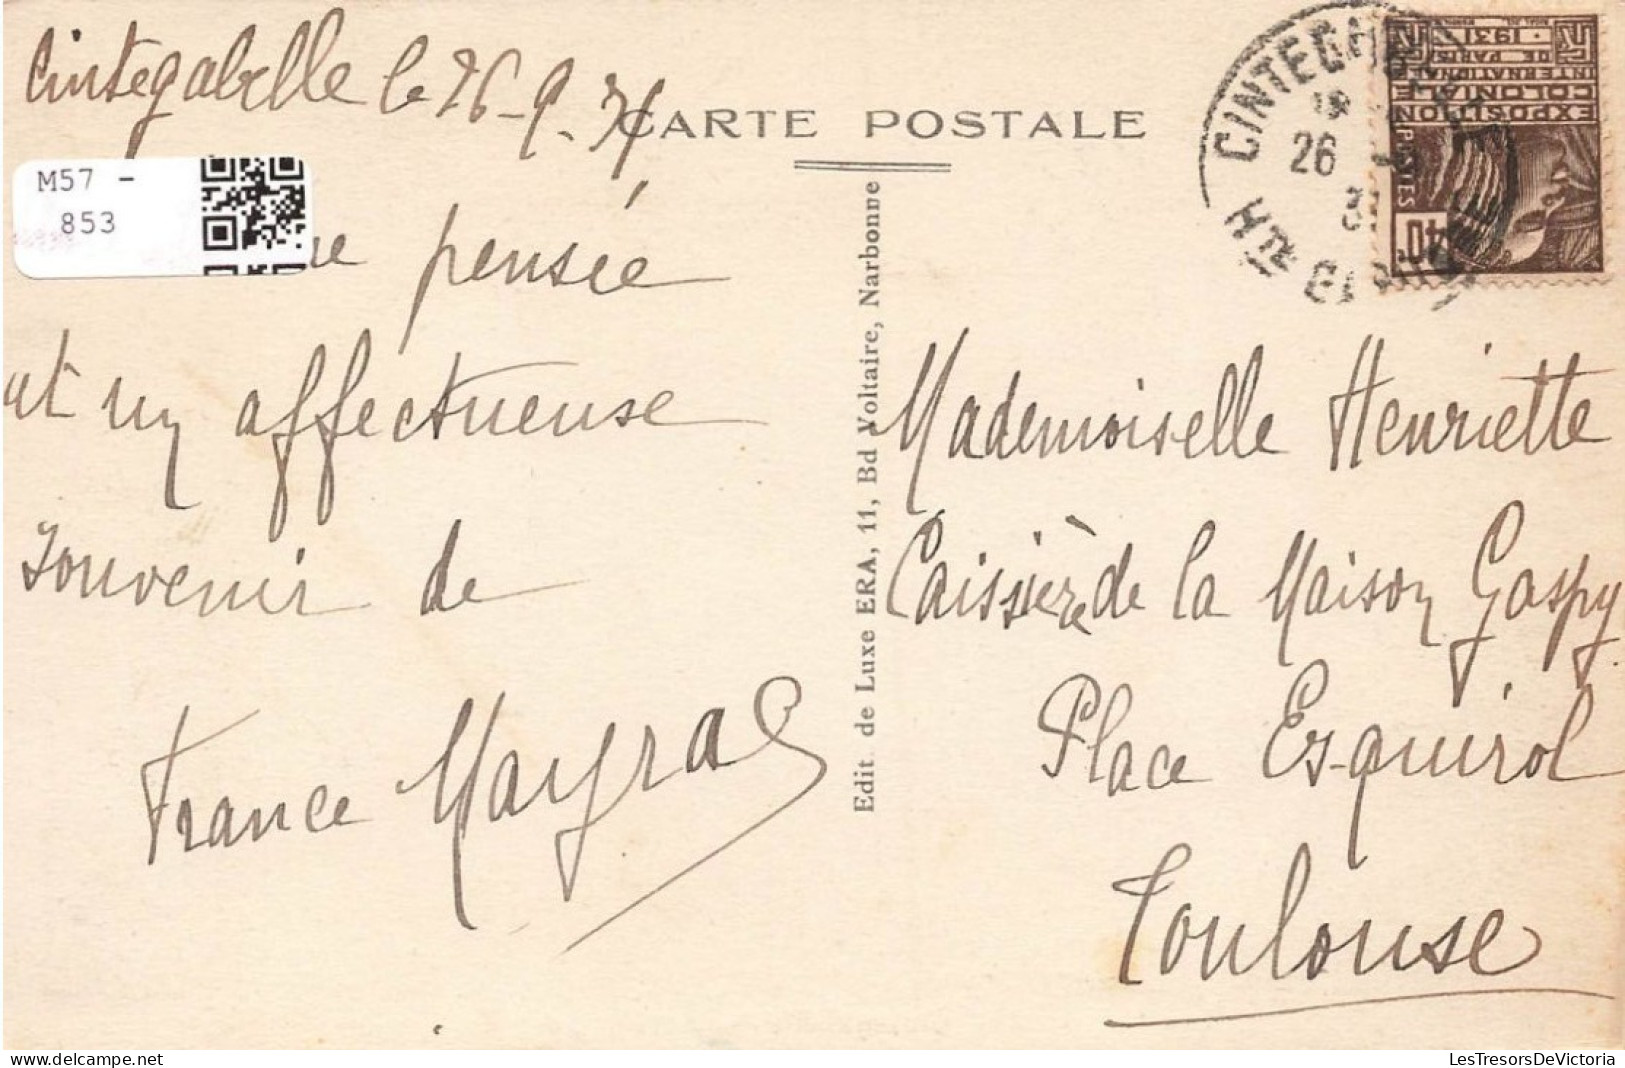 Cintegabelle le 26-9-31
CARTE POSTALE
M57 -
853
ue pensée
et un affectueuse
souvenir de
France Mayras
Edit. de Luxe ERA, 11, Bd Voltaire, Narbonne
CINTEGA
26
Hte GARONNE
EXPOSITION
COLONIALE
INTERNATIONALE
DE PARIS
1931
POSTES
40c
Mademoiselle Henriette
Caissière de la Maison Gaspy
Place Esquirol
Toulouse
LesTresorsDeVictoria